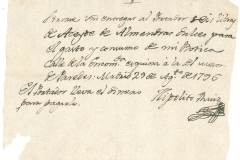 Sirvase Vm entregar al Portador Seis libras
de Azeyte de Almendras dulces para
el gasto y consumo de mi Botica
Calle de la Encomda esquina a la del meson
de Paredes. Madrid 29 de Agto de 1796
El Portador lleva el dinero
para pagarlo.
Hipolito Ruiz